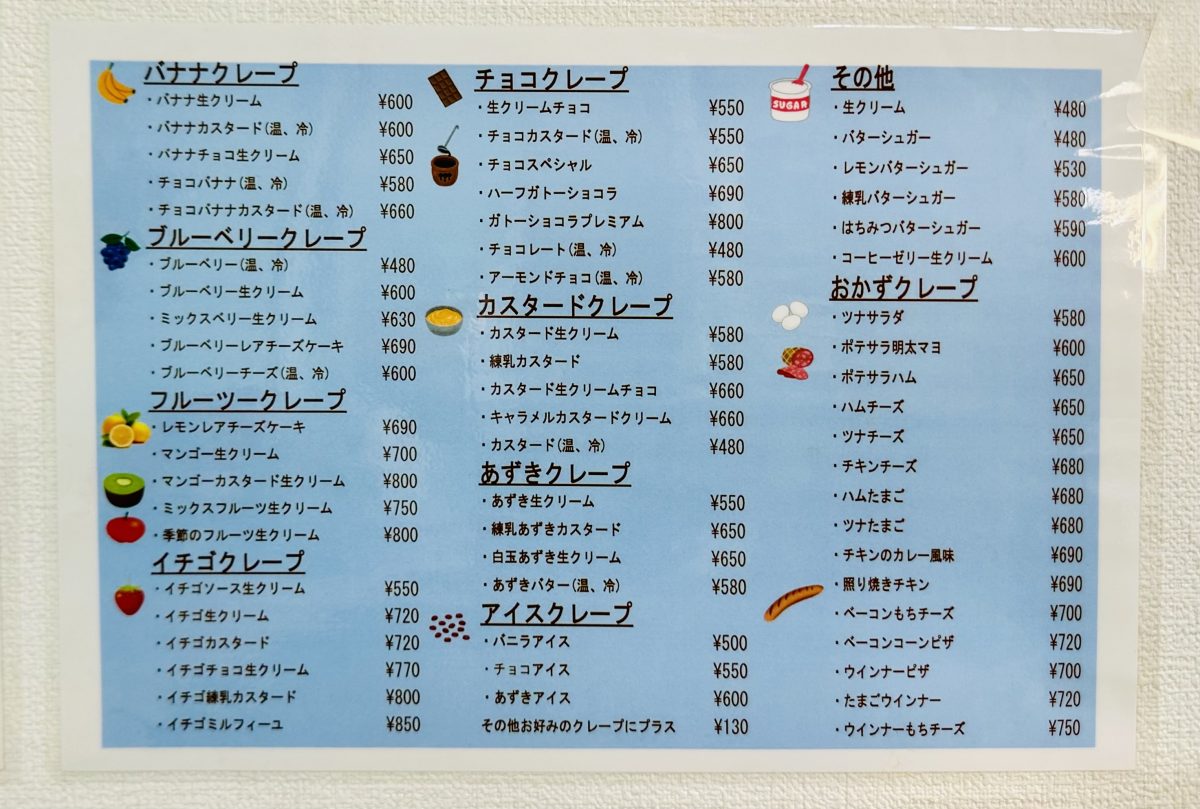 バナナクレープ
・バナナ生クリーム ¥600
・バナナカスタード(温、冷) ¥600
・バナナチョコ生クリーム ¥650
・チョコバナナ(温、冷) ¥580
・チョコバナナカスタード(温、冷) ¥660
ブルーベリークレープ
・ブルーベリー(温、冷) ¥480
・ブルーベリー生クリーム ¥600
・ミックスベリー生クリーム ¥630
・ブルーベリーレアチーズケーキ ¥690
・ブルーベリーチーズ(温、冷) ¥600
フルーツークレープ
・レモンレアチーズケーキ ¥690
・マンゴー生クリーム ¥700
・マンゴーカスタード生クリーム ¥800
・ミックスフルーツ生クリーム ¥750
・季節のフルーツ生クリーム ¥800
イチゴクレープ
・イチゴソース生クリーム ¥550
・イチゴ生クリーム ¥720
・イチゴカスタード ¥720
・イチゴチョコ生クリーム ¥770
・イチゴ練乳カスタード ¥800
・イチゴミルフィーユ ¥850
チョコクレープ
・生クリームチョコ ¥550
・チョコカスタード(温、冷) ¥550
・チョコスペシャル ¥650
・ハーフガトーショコラ ¥690
・ガトーショコラプレミアム ¥800
・チョコレート(温、冷) ¥480
・アーモンドチョコ(温、冷) ¥580
カスタードクレープ
・カスタード生クリーム ¥580
・練乳カスタード ¥580
・カスタード生クリームチョコ ¥660
・キャラメルカスタードクリーム ¥660
・カスタード(温、冷) ¥480
あずきクレープ
・あずき生クリーム ¥550
・練乳あずきカスタード ¥650
・白玉あずき生クリーム ¥650
・あずきバター(温、冷) ¥580
アイスクレープ
・バニラアイス ¥500
・チョコアイス ¥550
・あずきアイス ¥600
その他お好みのクレープにプラス ¥130
SUGAR
その他
・生クリーム ¥480
・バターシュガー ¥480
・レモンバターシュガー ¥530
・練乳バターシュガー ¥580
・はちみつバターシュガー ¥590
・コーヒーゼリー生クリーム ¥600
おかずクレープ
・ツナサラダ ¥580
・ポテサラ明太マヨ ¥600
・ポテサラハム ¥650
・ハムチーズ ¥650
・ツナチーズ ¥650
・チキンチーズ ¥680
・ハムたまご ¥680
・ツナたまご ¥680
・チキンのカレー風味 ¥690
・照り焼きチキン ¥690
・ベーコンもちチーズ ¥700
・ベーコンコーンピザ ¥720
・ウインナーピザ ¥700
・たまごウインナー ¥720
・ウインナーもちチーズ ¥750